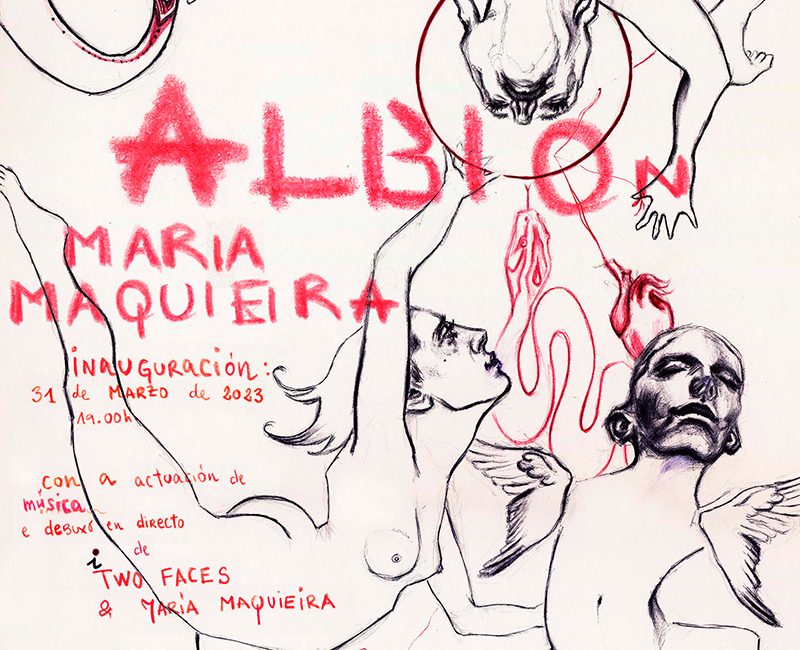 ALBIÓN
MARIA
MAQUIEIRA
INAUGURACIÓN:
31 de MARZO de 2023
19.00h
con a actuación de
música
e DEBUXO en DIRECTO
de
i TWO FACES
& MARÍA MAQUIEIRA